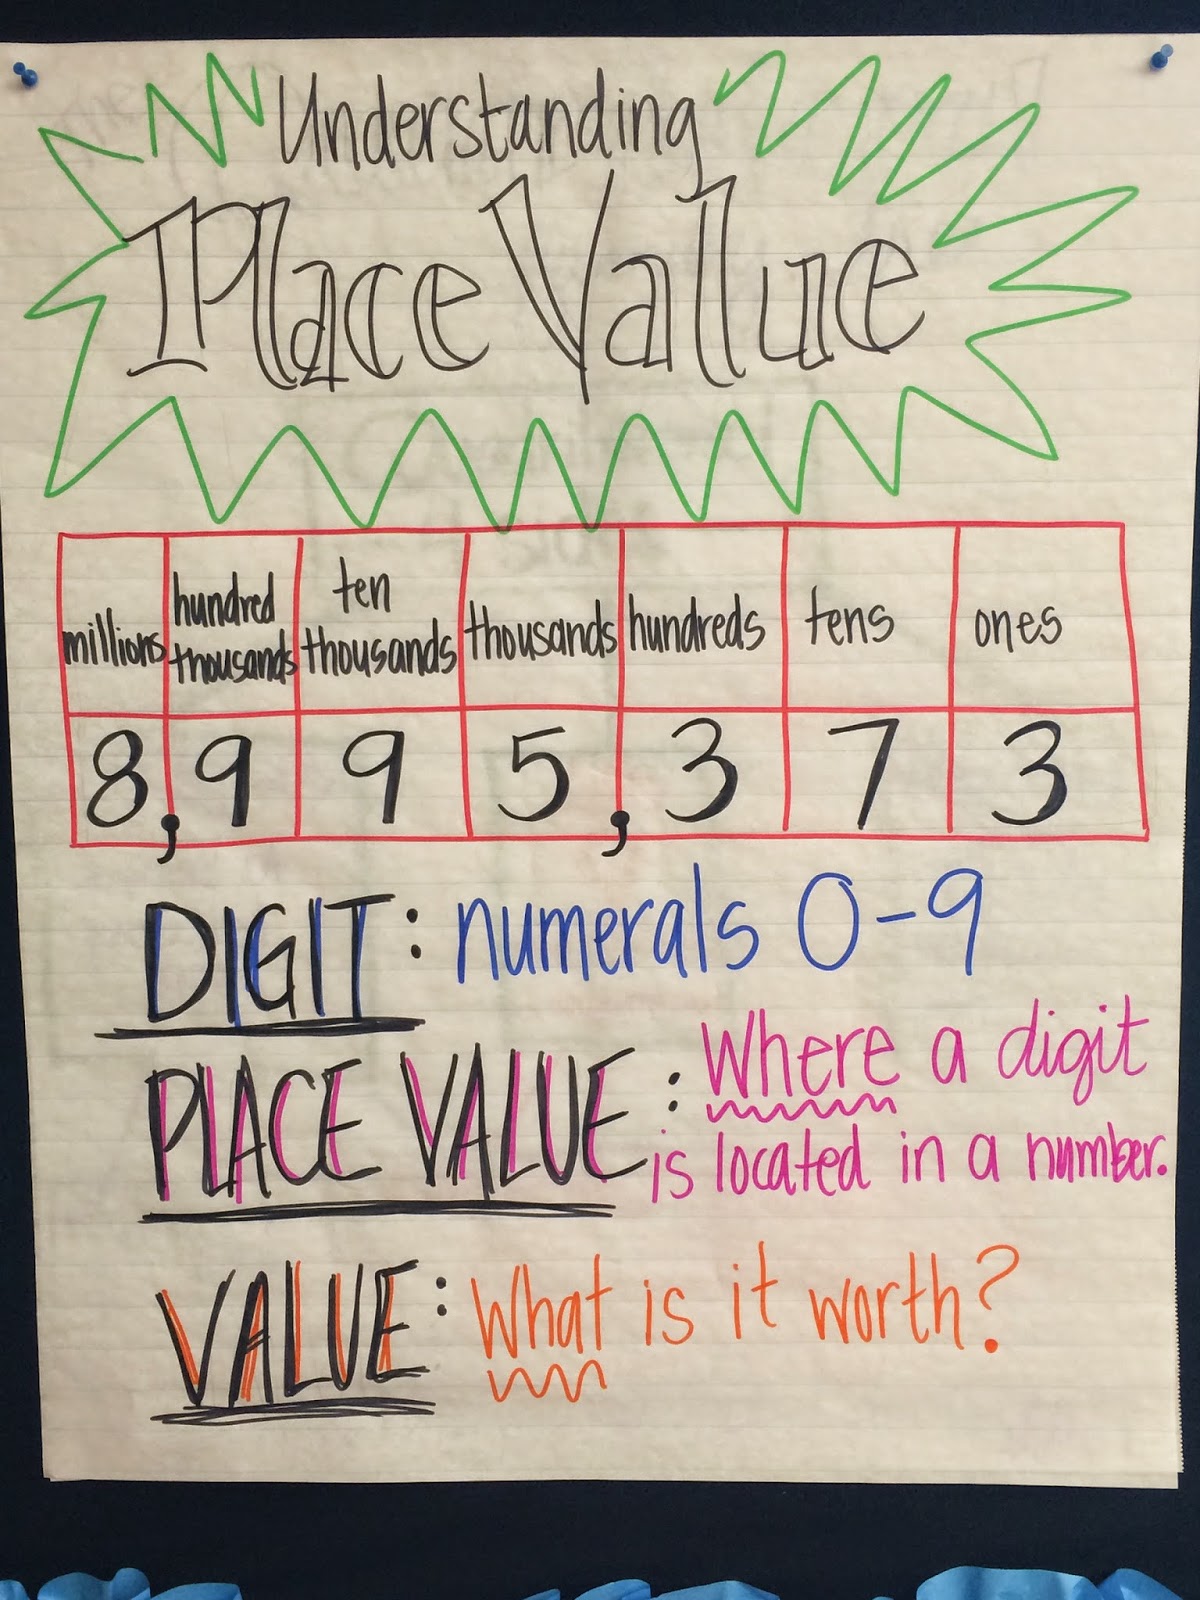 Understanding
Place Value
millions hundred thousands ten thousands thousands hundreds tens ones
8,995,373
DIGIT: numerals 0-9
PLACE VALUE: Where a digit
is located in a number.
VALUE: What is it worth?